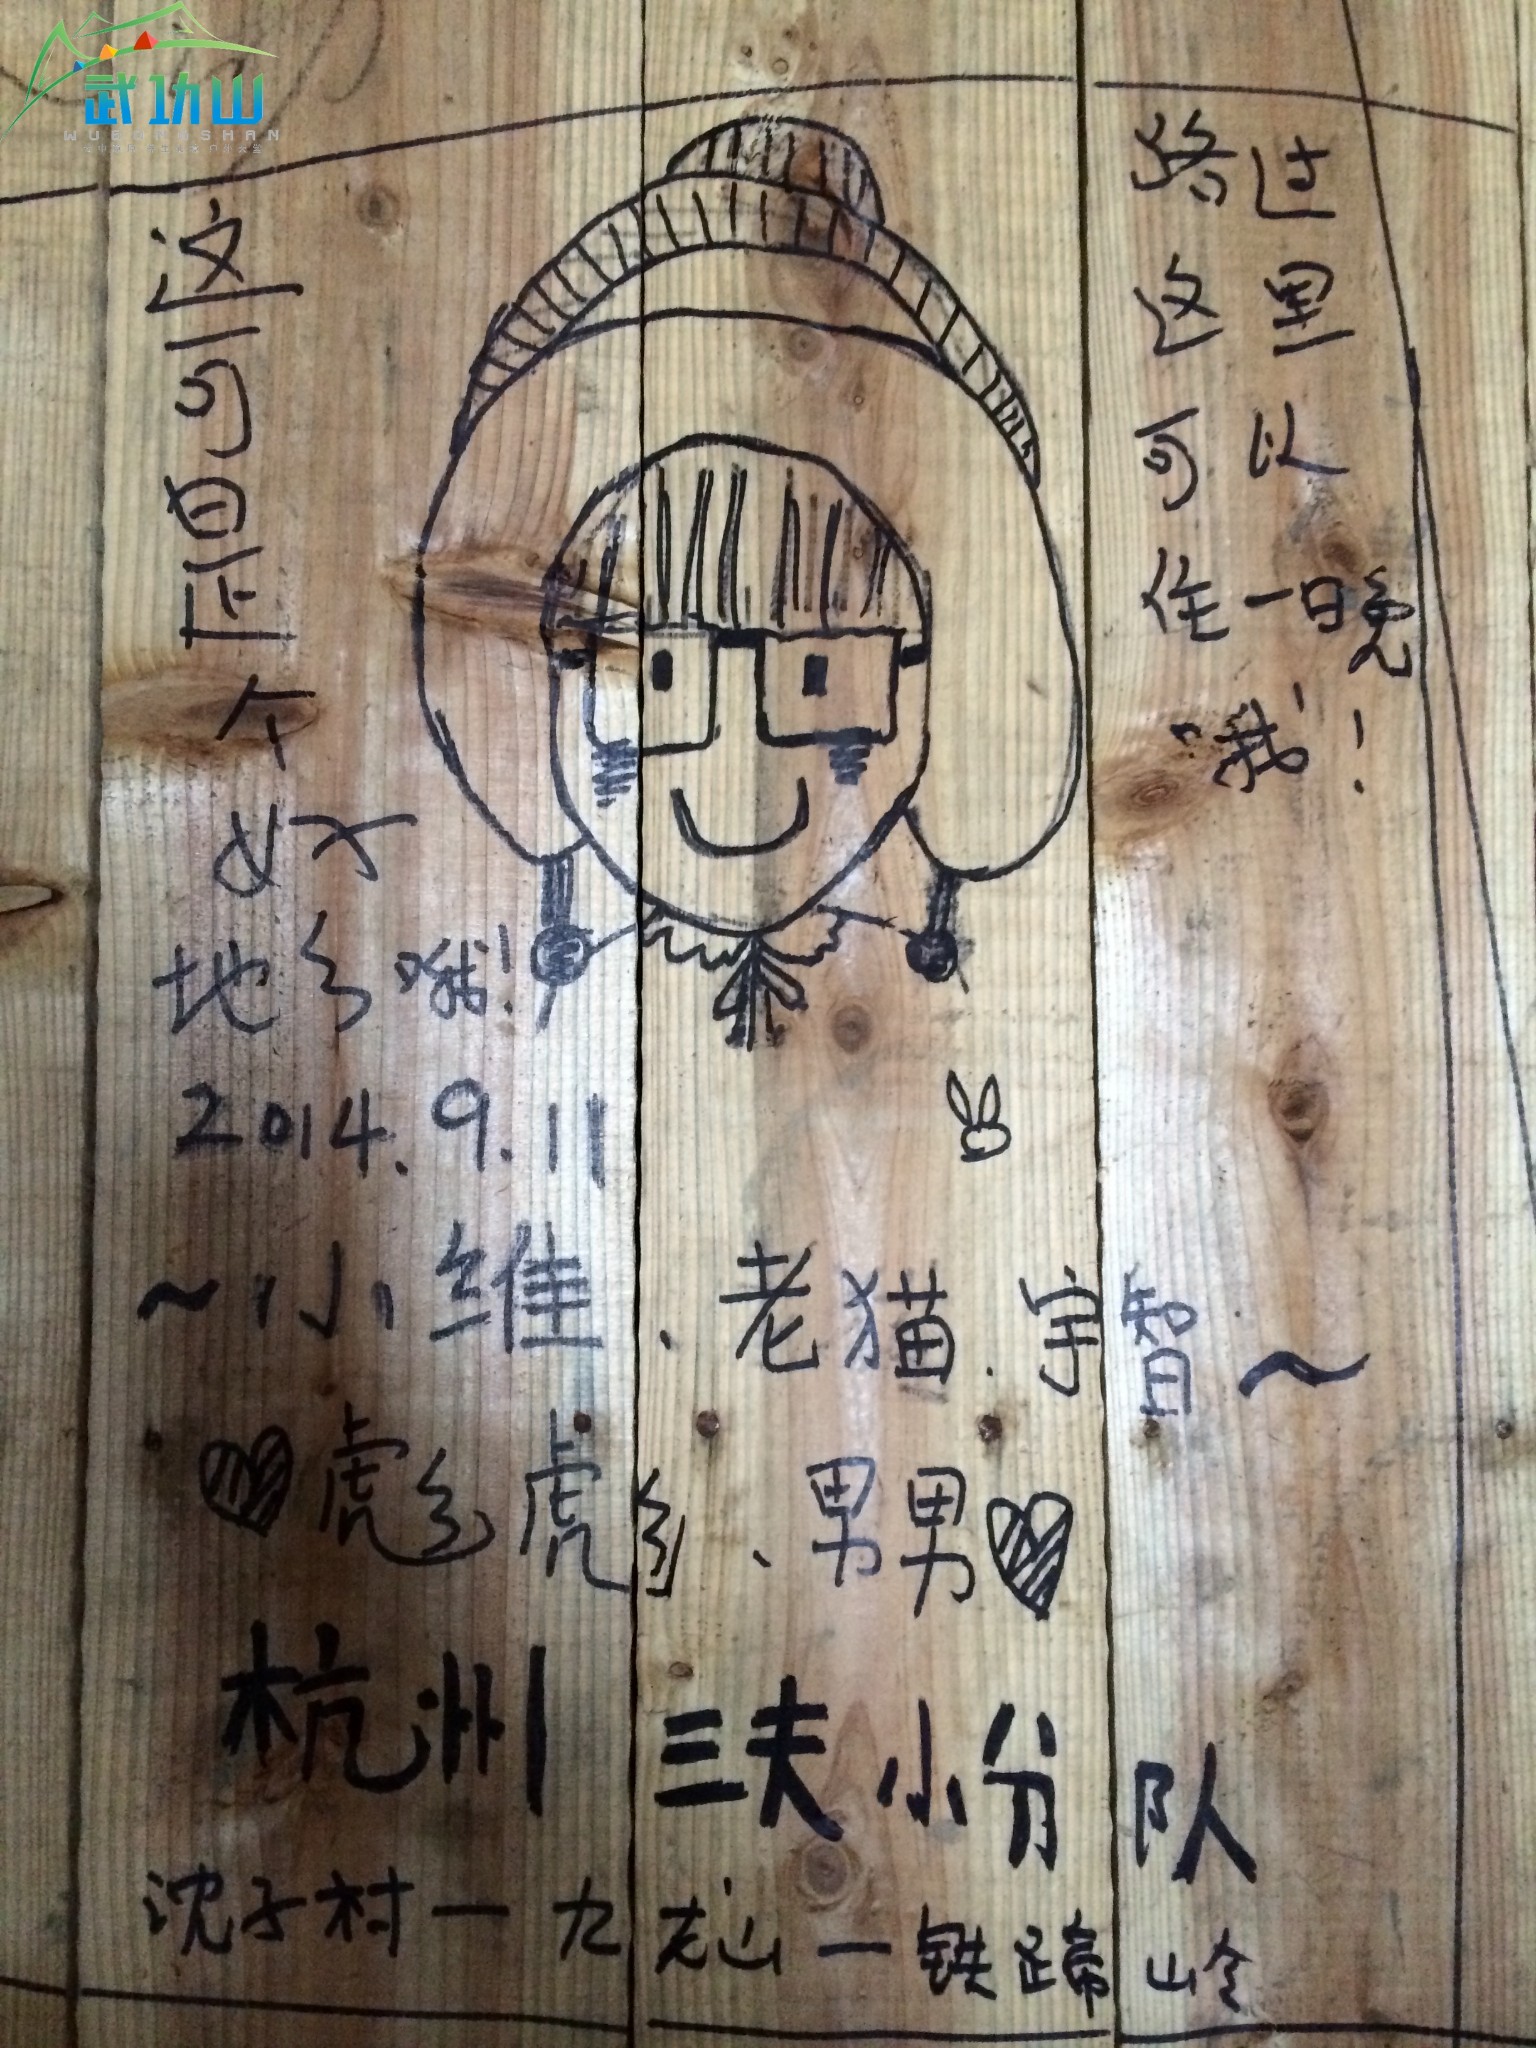 路过
这里
可以
住一晚
哦!
这可是个好
地方哦!
2014.9.11
~小维、老猫、宇智~
彪彪、男男
杭州三夫小分队
沈子村—九龙山—铁蹄岭
武功山
WUGONGSHAN